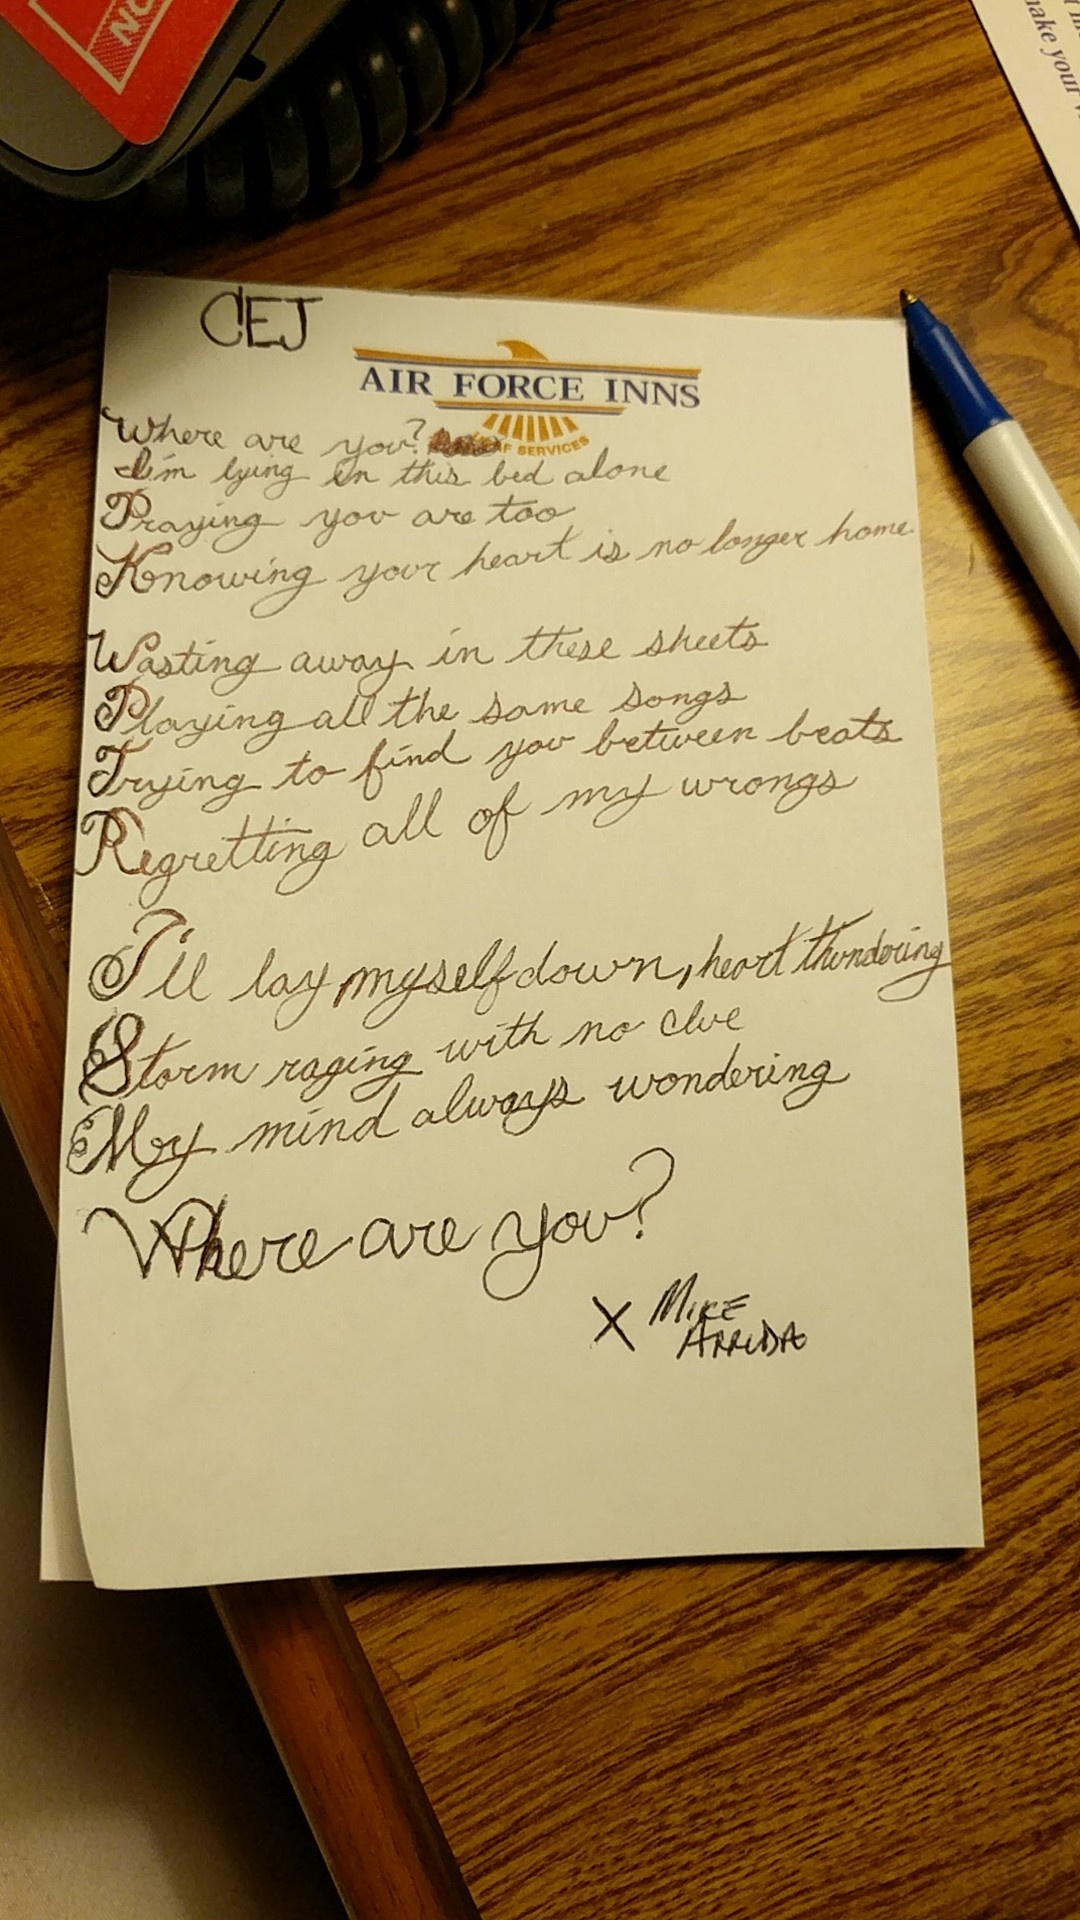 NO
make your
CEJ
AIR FORCE INNS
SERVICES
Where are you?
I'm lying in this bed alone
Praying you are too
Knowing your heart is no longer home
Wasting away in these sheets
Playing all the same songs
Trying to find you between beats
Regretting all of my wrongs
I'll lay myself down, heart thundering
Storm raging with no clue
My mind always wondering
Where are you?
X MIKE
ARRUDA